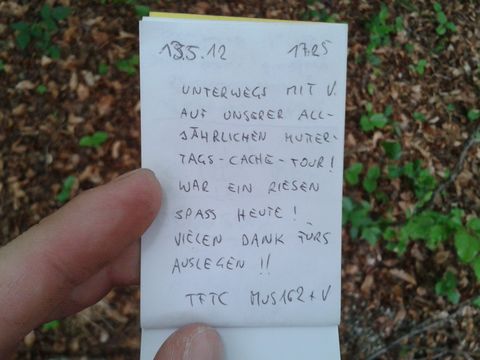 13.5.12 17.25
UNTERWEGS MIT V.
AUF UNSERER ALL-
JÄHRLICHEN MUTTER-
TAGS-CACHE-TOUR!
WAR EIN RIESEN
SPASS HEUTE!
VIELEN DANK FÜRS
AUSLEGEN!!
TFTC MUS162+V